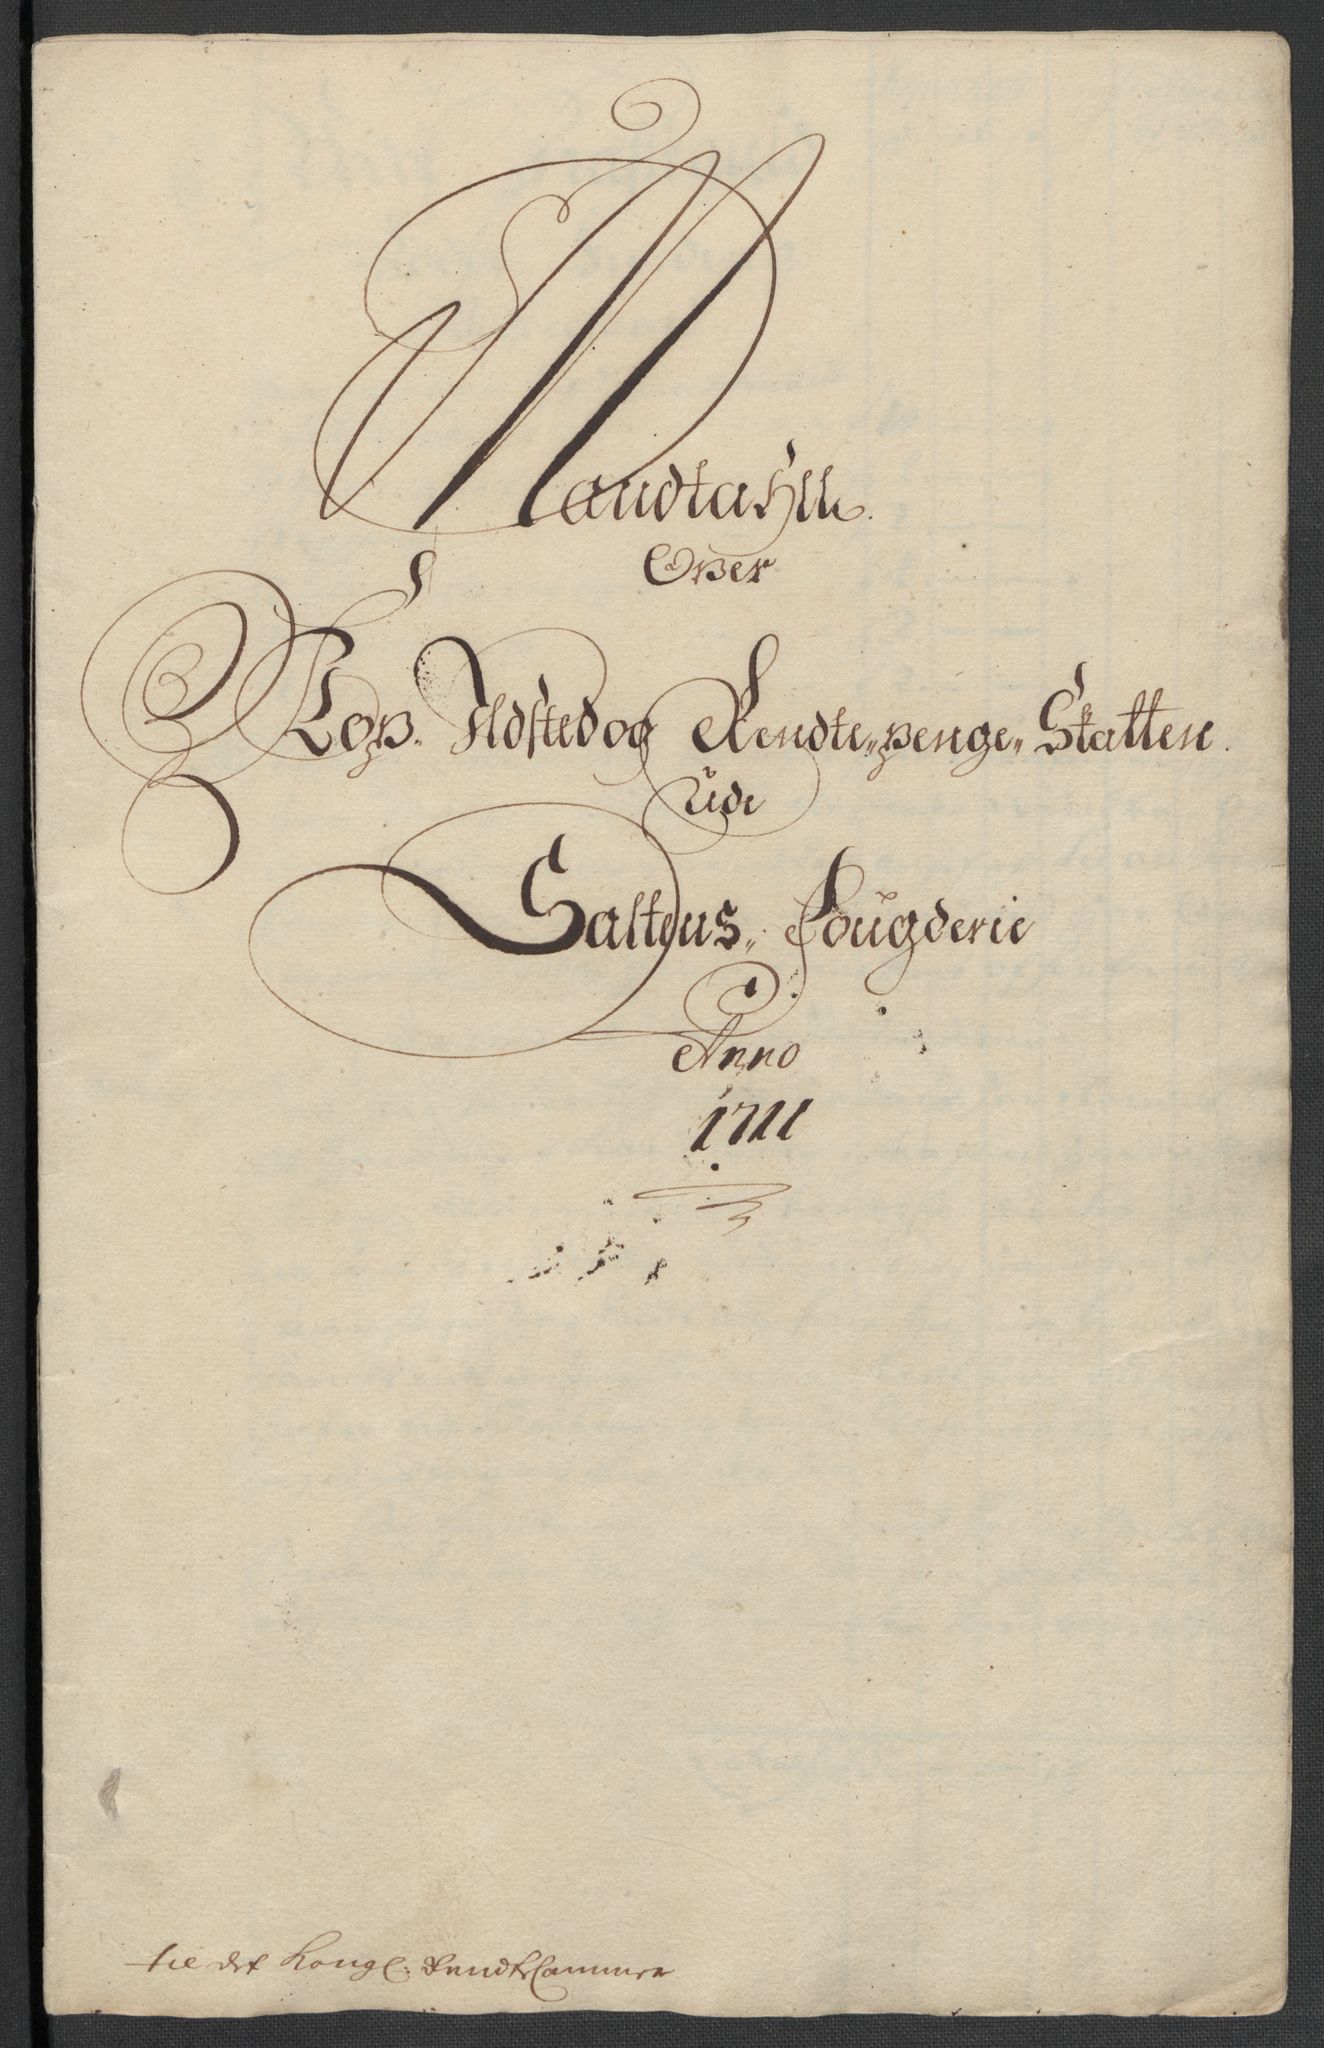 Mandtahll
Over
Kop. Ildsted og Rendte„penge„ Skatten.
Udi
Saltens„ Fougderie
Anno
1711
til det Kongl. RendteCammer